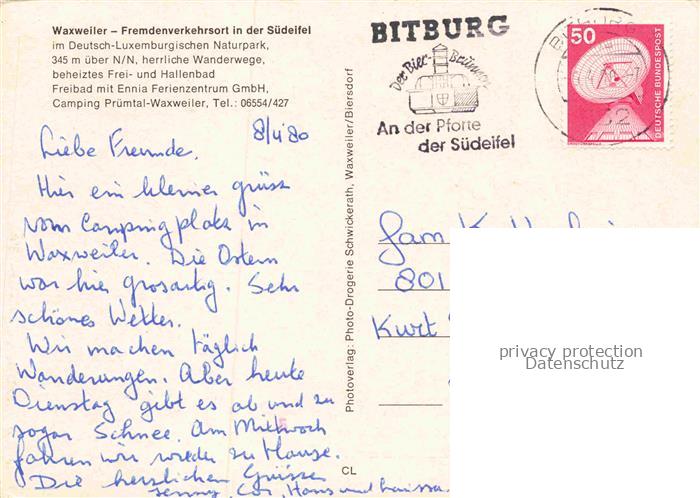 Waxweiler – Fremdenverkehrsort in der Südeifel
im Deutsch-Luxemburgischen Naturpark,
345 m über N/N, herrliche Wanderwege,
beheiztes Frei- und Hallenbad
Freibad mit Ennia Ferienzentrum GmbH,
Camping Prümtal-Waxweiler, Tel.: 06554/427
8/4 80
Liebe Freunde.
Hier ein kleiner grüss
vom Campingplatz in
Waxweiler. Die Ostern
war hier grosartig. Sehr
schönes Wetter.
Wir machen täglich
Wanderungen. Aber heute
Dienstag gibt es ab und zu
sogar Schnee. Am Mittwoch
fahren wir wieder zu Hause.
Die herzlichen Grüssen
Cor, Hans und
Photoverlag: Photo-Drogerie Schwickerath, Waxweiler/Biersdorf
CL
BITBURG
Der Bier-Brunnen
An der Pforte
der Südeifel
50
DEUTSCHE BUNDESPOST
Fam
801
Kurt
privacy protection
Datenschutz